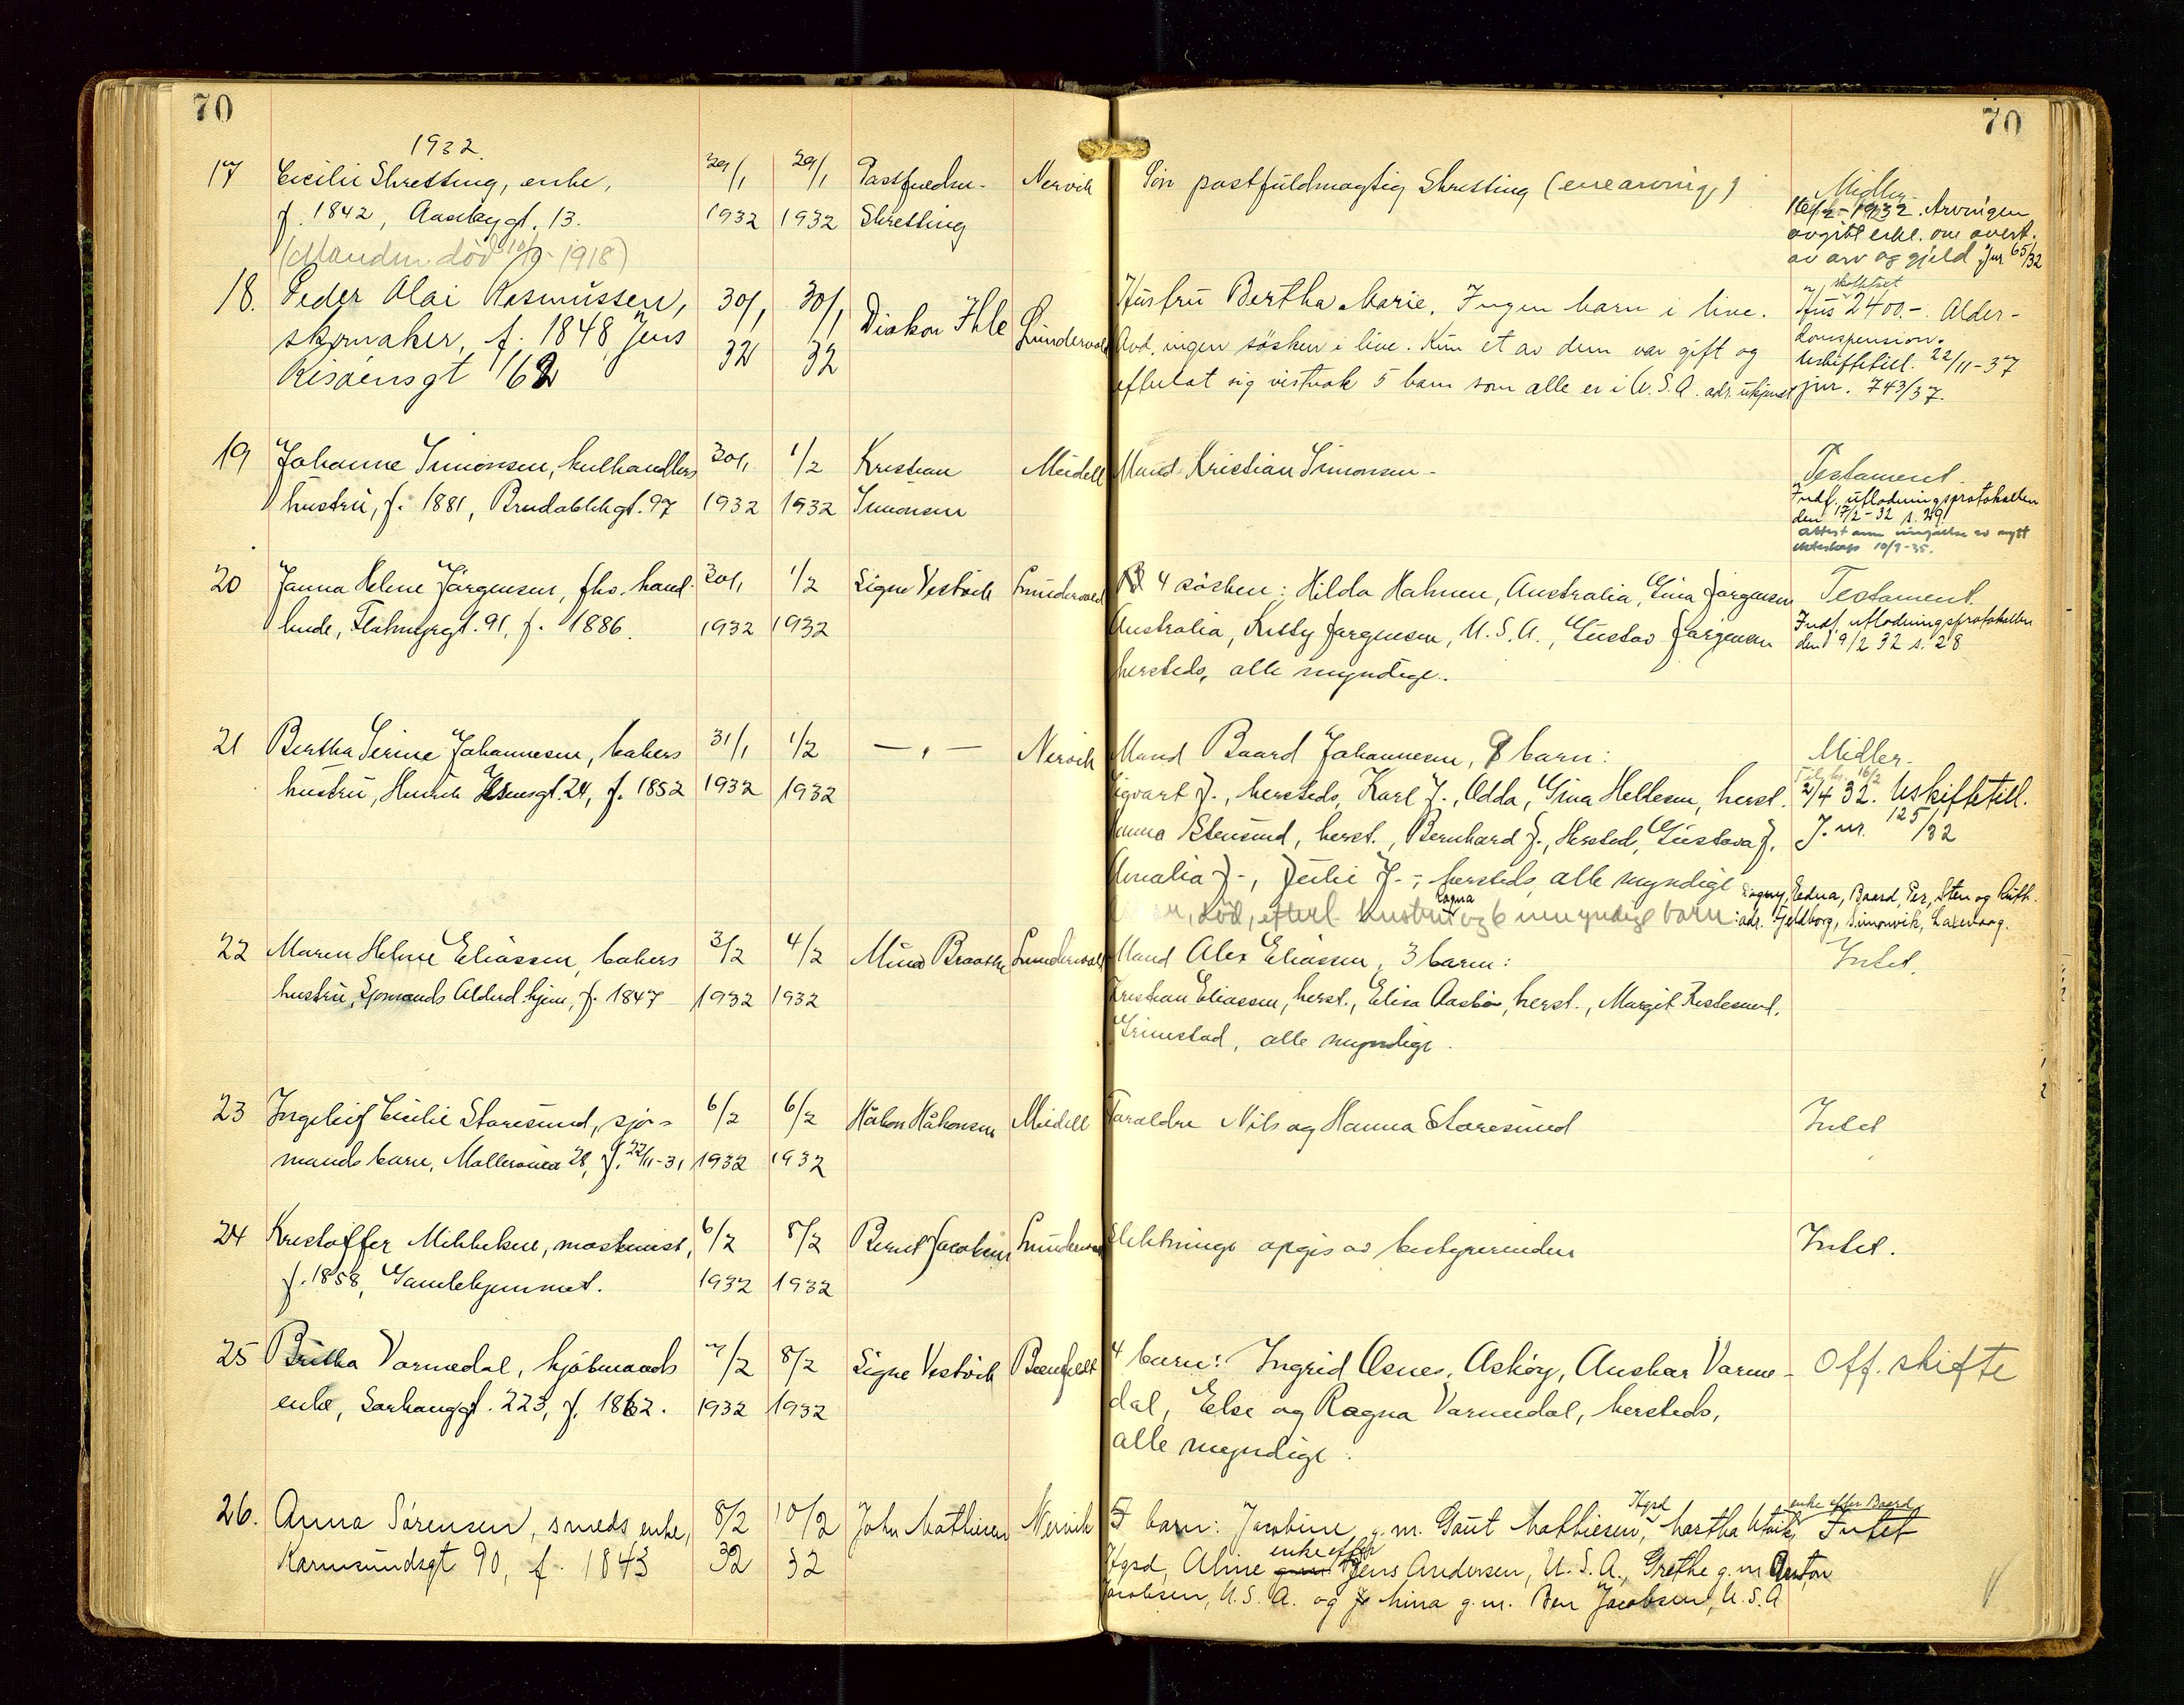 70
70
1932.
17 Cicilie Skretting, enke, 29/1 29/1 Postfuldm. Nervik Søn postfuldmægtig Skretting (enearving) Midler.
f. 1842, Aasebygt. 13. 1932 1932 Skretting 16/2-1932. Arvingen
(Manden död 10/9-1918) avgitt erkl. om overt.
av arv og gjeld Jnr 65/32
18. Peder Olai Rasmussen, 30/1 30/1 Diakon Ihle Sundervold Hustru Bertha Marie. Ingen barn i live. Hus skattset 2400.-. Alder-
skomaker, f. 1848 Jens 32 32 Avd. ingen søsken i live. Kun et av dem var gift og domspension.
Risøensgt 162 efterlot sig vistnok 5 barn som alle er i U.S.A. adr. ukjendt Uskiftetill. 22/11-37
jnr. 743/37.
19 Johanne Simonsen, kulhandlers 30/1 1/2 Kristian Meidell Mand Kristian Simonsen- Testament.
hustru, f. 1881, Breidablikgt. 97 1932 1932 Simonsen Indf. utlodningsprotokollen
den 17/2-32 s. 29.
Attest om inngåelse av nytt
ekteskap 10/9-35.
20 Janna Helene Jörgensen, fhv. hand- 30/1 1/2 Signe Vestvik Sundervold 4 søsken: Hilda Hahnen, Australia, Gina Jørgensen Testament.
lende, Flotmyrgt. 91, f. 1886. 1932 1932 Australia, Kitty Jørgensen, U.S.A., Gustav Jørgensen Indf. utlodningsprotokollen
hersteds, alle myndige. den 19/2 32 s. 28
21 Bertha Serine Johannesen, bakers 31/1 1/2 — " — Nervik Mand Baard Johannesen, 8 barn: Midler.
hustru, Henrik Ibsensgt. 24, f. 1852 1932 1932 Sigvart J., hersteds, Karl J., Odda, Gina Hellesen, herst. 2/4 32. Uskiftetill.
Hanna Stensund, herst., Bernhard J., Hersted, Gustava J. J.nr. 125/32
Amalia J-, Julie J-, hersteds, alle myndige
død, efterl. hustru Ragna og 6 umyndige barn: Dagny, Edna, Baard, Per, Sten og Ruth.
adr. Fjeldborg, Simonvik, Laxevaag.
22 Maren Helene Eliassen, bakers 3/2 4/2 Mina Braathe Sundervold Mand Alex Eliassen, 3 barn: Intet.
hustru, Sjømands Alderd.hjem, f. 1847 1932 1932 Kristian Eliassen, herst., Elisa Aasbø, herst., Margit Restesund,
Grimstad, alle myndige.
23 Ingeleif Cicilie Storesund, sjø- 6/2 6/2 Håkon Håkonsen Meidell Foreldre Nils og Hanna Storesund Intet
mands barn, Møllerveien 28, f. 22/11-31 1932 1932
24 Kristoffer Mikkelsen, maskinist, 6/2 8/2 Bernt Jacobsen Sundervold Slektninge opgis av bestyrerinden Intet.
f. 1858, Gamlehjemmet. 1932 1932
25 Britha Varnedal, kjøbmands 7/2 8/2 Signe Vestvik Beenfeldt 4 barn: Ingrid Osnes, Askøy, Anskar Varne- Off. skifte
enke, Sørhauggt. 223, f. 1862. 1932 1932 dal, Else og Ragna Varnedal, hersteds,
alle myndige.
26. Anna Sørensen, smeds enke, 8/2 10/2 John Mathiesen Nervik 5 barn: Jacobine g.m. Gaut Mathiesen, Hgsd Martha Utvik, enke efter Baard Intet
Karmsundsgt 90, f. 1843 32 32 Hgsd, Aline enke efter Jens Andersen, U.S.A., Grethe g.m Anton
Jacobsen, U.S.A. og Mina g.m. Ben Jacobsen, U.S.A